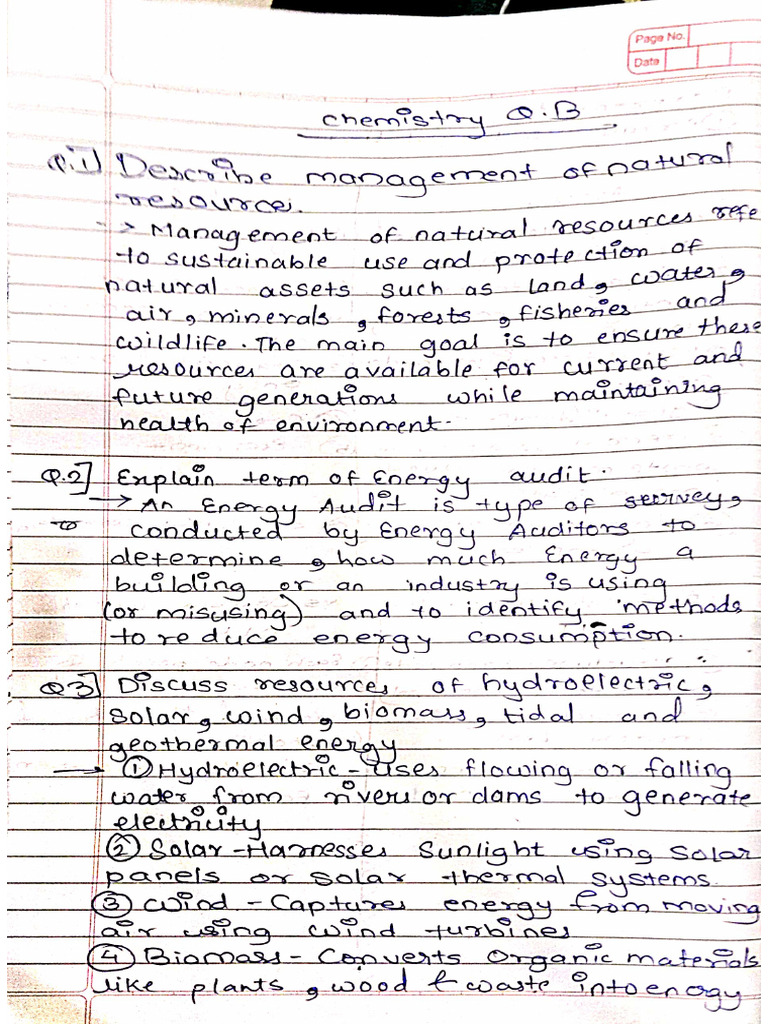 Page No.
Date
Chemistry Q.B
Q.1] Describe management of natural
resource.
-> Management of natural resources refe
to sustainable use and protection of
natural assets such as land, water,
air, minerals, forests, fisheries and
wildlife. The main goal is to ensure these
resources are available for current and
future generations while maintaining
health of environment.
Q.2] Explain term of Energy audit.
→ An Energy Audit is type of survey,
to conducted by Energy Auditors to
determine, how much Energy a
building or an industry is using
(or misusing) and to identify methods
to reduce energy consumption.
Q3] Discuss resources of hydroelectric,
solar, wind, biomass, tidal and
geothermal energy
→ ① Hydroelectric - Uses flowing or falling
water from rivers or dams to generate
electricity
② Solar - Harnesses Sunlight using Solar
panels or solar thermal systems.
③ Wind - Captures energy from moving
air using wind turbines
④ Biomass - Converts Organic materials
like plants, wood & waste into enogy